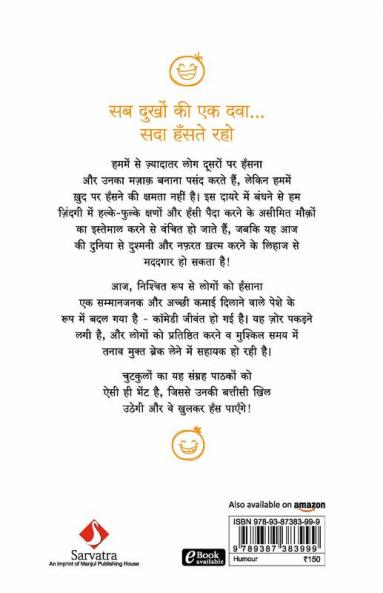 सब दुखों की एक दवा...
सदा हँसते रहो
हममें से ज़्यादातर लोग दूसरों पर हँसना
और उनका मज़ाक बनाना पसंद करते हैं, लेकिन हममें
ख़ुद पर हँसने की क्षमता नहीं है। इस दायरे में बंधने से हम
ज़िंदगी में हल्के-फुल्के क्षणों और हँसी पैदा करने के असीमित मौक़ों
का इस्तेमाल करने से वंचित हो जाते हैं, जबकि यह आज
की दुनिया से दुश्मनी और नफ़रत ख़त्म करने के लिहाज से
मददगार हो सकता है!
आज, निश्चित रूप से लोगों को हँसाना
एक सम्मानजनक और अच्छी कमाई दिलाने वाले पेशे के
रूप में बदल गया है - कॉमेडी जीवंत हो गई है। यह ज़ोर पकड़ने
लगी है, और लोगों को प्रतिष्ठित करने व मुश्किल समय में
तनाव मुक्त ब्रेक लेने में सहायक हो रही है।
चुटकुलों का यह संग्रह पाठकों को
ऐसी ही भेंट है, जिससे उनकी बत्तीसी खिल
उठेगी और वे खुलकर हँस पाएँगे!
Also available on amazon
ISBN 978-93-87383-99-9
9 789387 383999
Humour ₹150
eBook
available
Sarvatra
An imprint of Manjul Publishing House